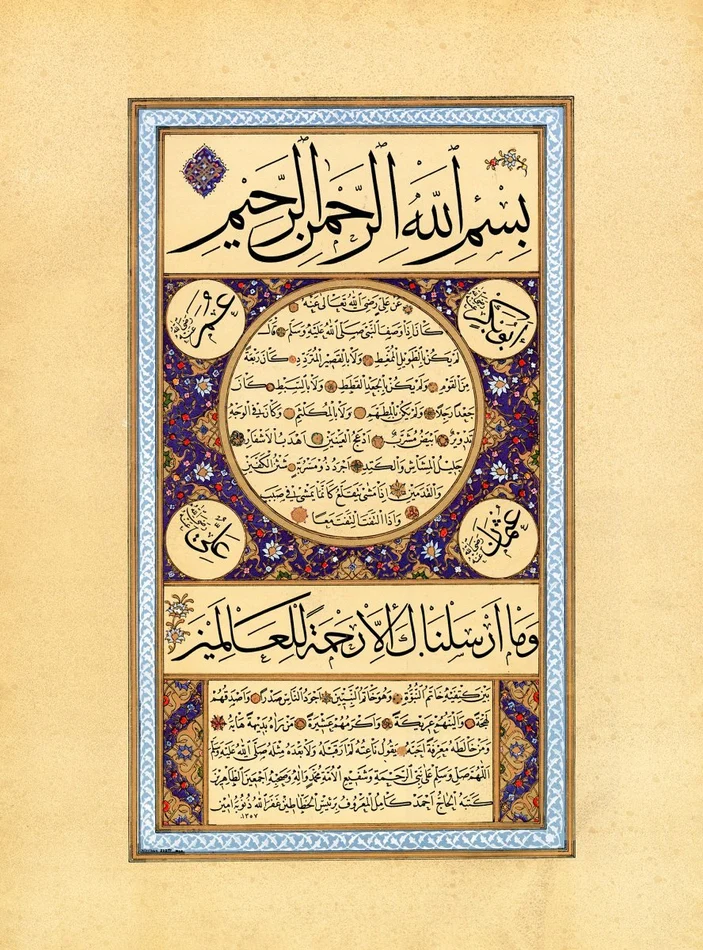 بسم الله الرحمن الرحيم
أبو بكر رضي الله عنه
عمر رضي الله عنه
عن علي رضي الله تعالى عنه
كان اذا وصف النبي صلى الله عليه وسلم قال
لم يكن بالطويل الممغط ولا بالقصير المتردد كان ربعة
من القوم ولم يكن بالجعد القطط ولا بالسبط كان
جعدا رجلا ولم يكن بالمطهم ولا بالمكلثم وكان في الوجه
تدوير ابيض مشرب ادعج العينين اهدب الاشفار
جليل المشاش والكتد اجرد ذو مسربة شثن الكفين
والقدمين اذا مشى يتقلع كأنما يمشي في صبب
واذا التفت التفت معا
عثمان رضي الله عنه
علي رضي الله عنه
وما أرسلناك إلا رحمة للعالمين
بين كتفيه خاتم النبوة وهو خاتم النبيين اجود الناس صدرا واصدقهم
لهجة والينهم عريكة واكرمهم عشيرة من رآه بديهة هابه
ومن خالطه معرفة احبه يقول ناعته لم ار قبله ولا بعده مثله صلى الله عليه وسلم
اللهم صل وسلم على نبي الرحمة وشفيع الامة محمد وآله وصحبه اجمعين الطاهرين
كتبه الحاج احمد كامل المعروف برئيس الخطاطين غفر الله ذنوبه آمين
١٣٥٧